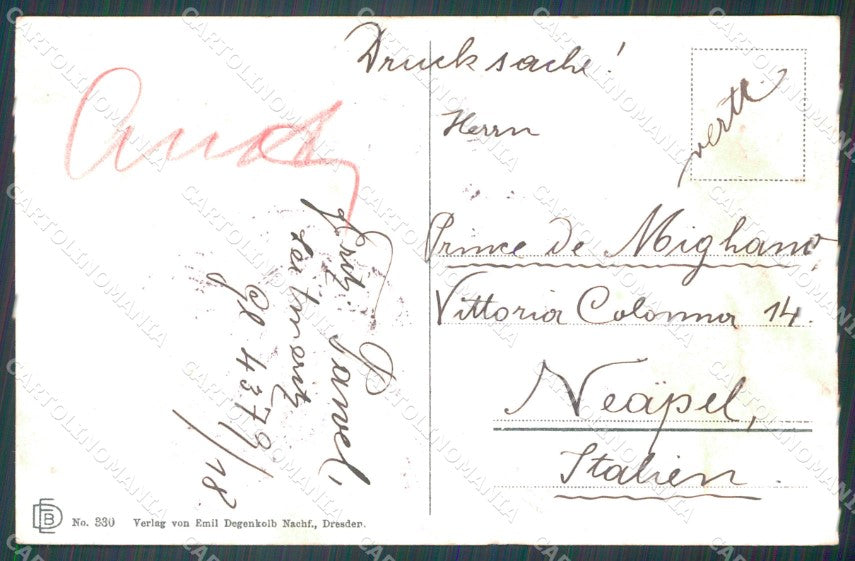 Drucksache!
Herrn
vertte
Prince de Mighano
Vittoria Colonna 14.
Neapel,
Italien.
Fritz Pawel,
Gf 4379/18
DEB No. 330 Verlag von Emil Degenkolb Nachf., Dresden.
CARTOLINOMANIA